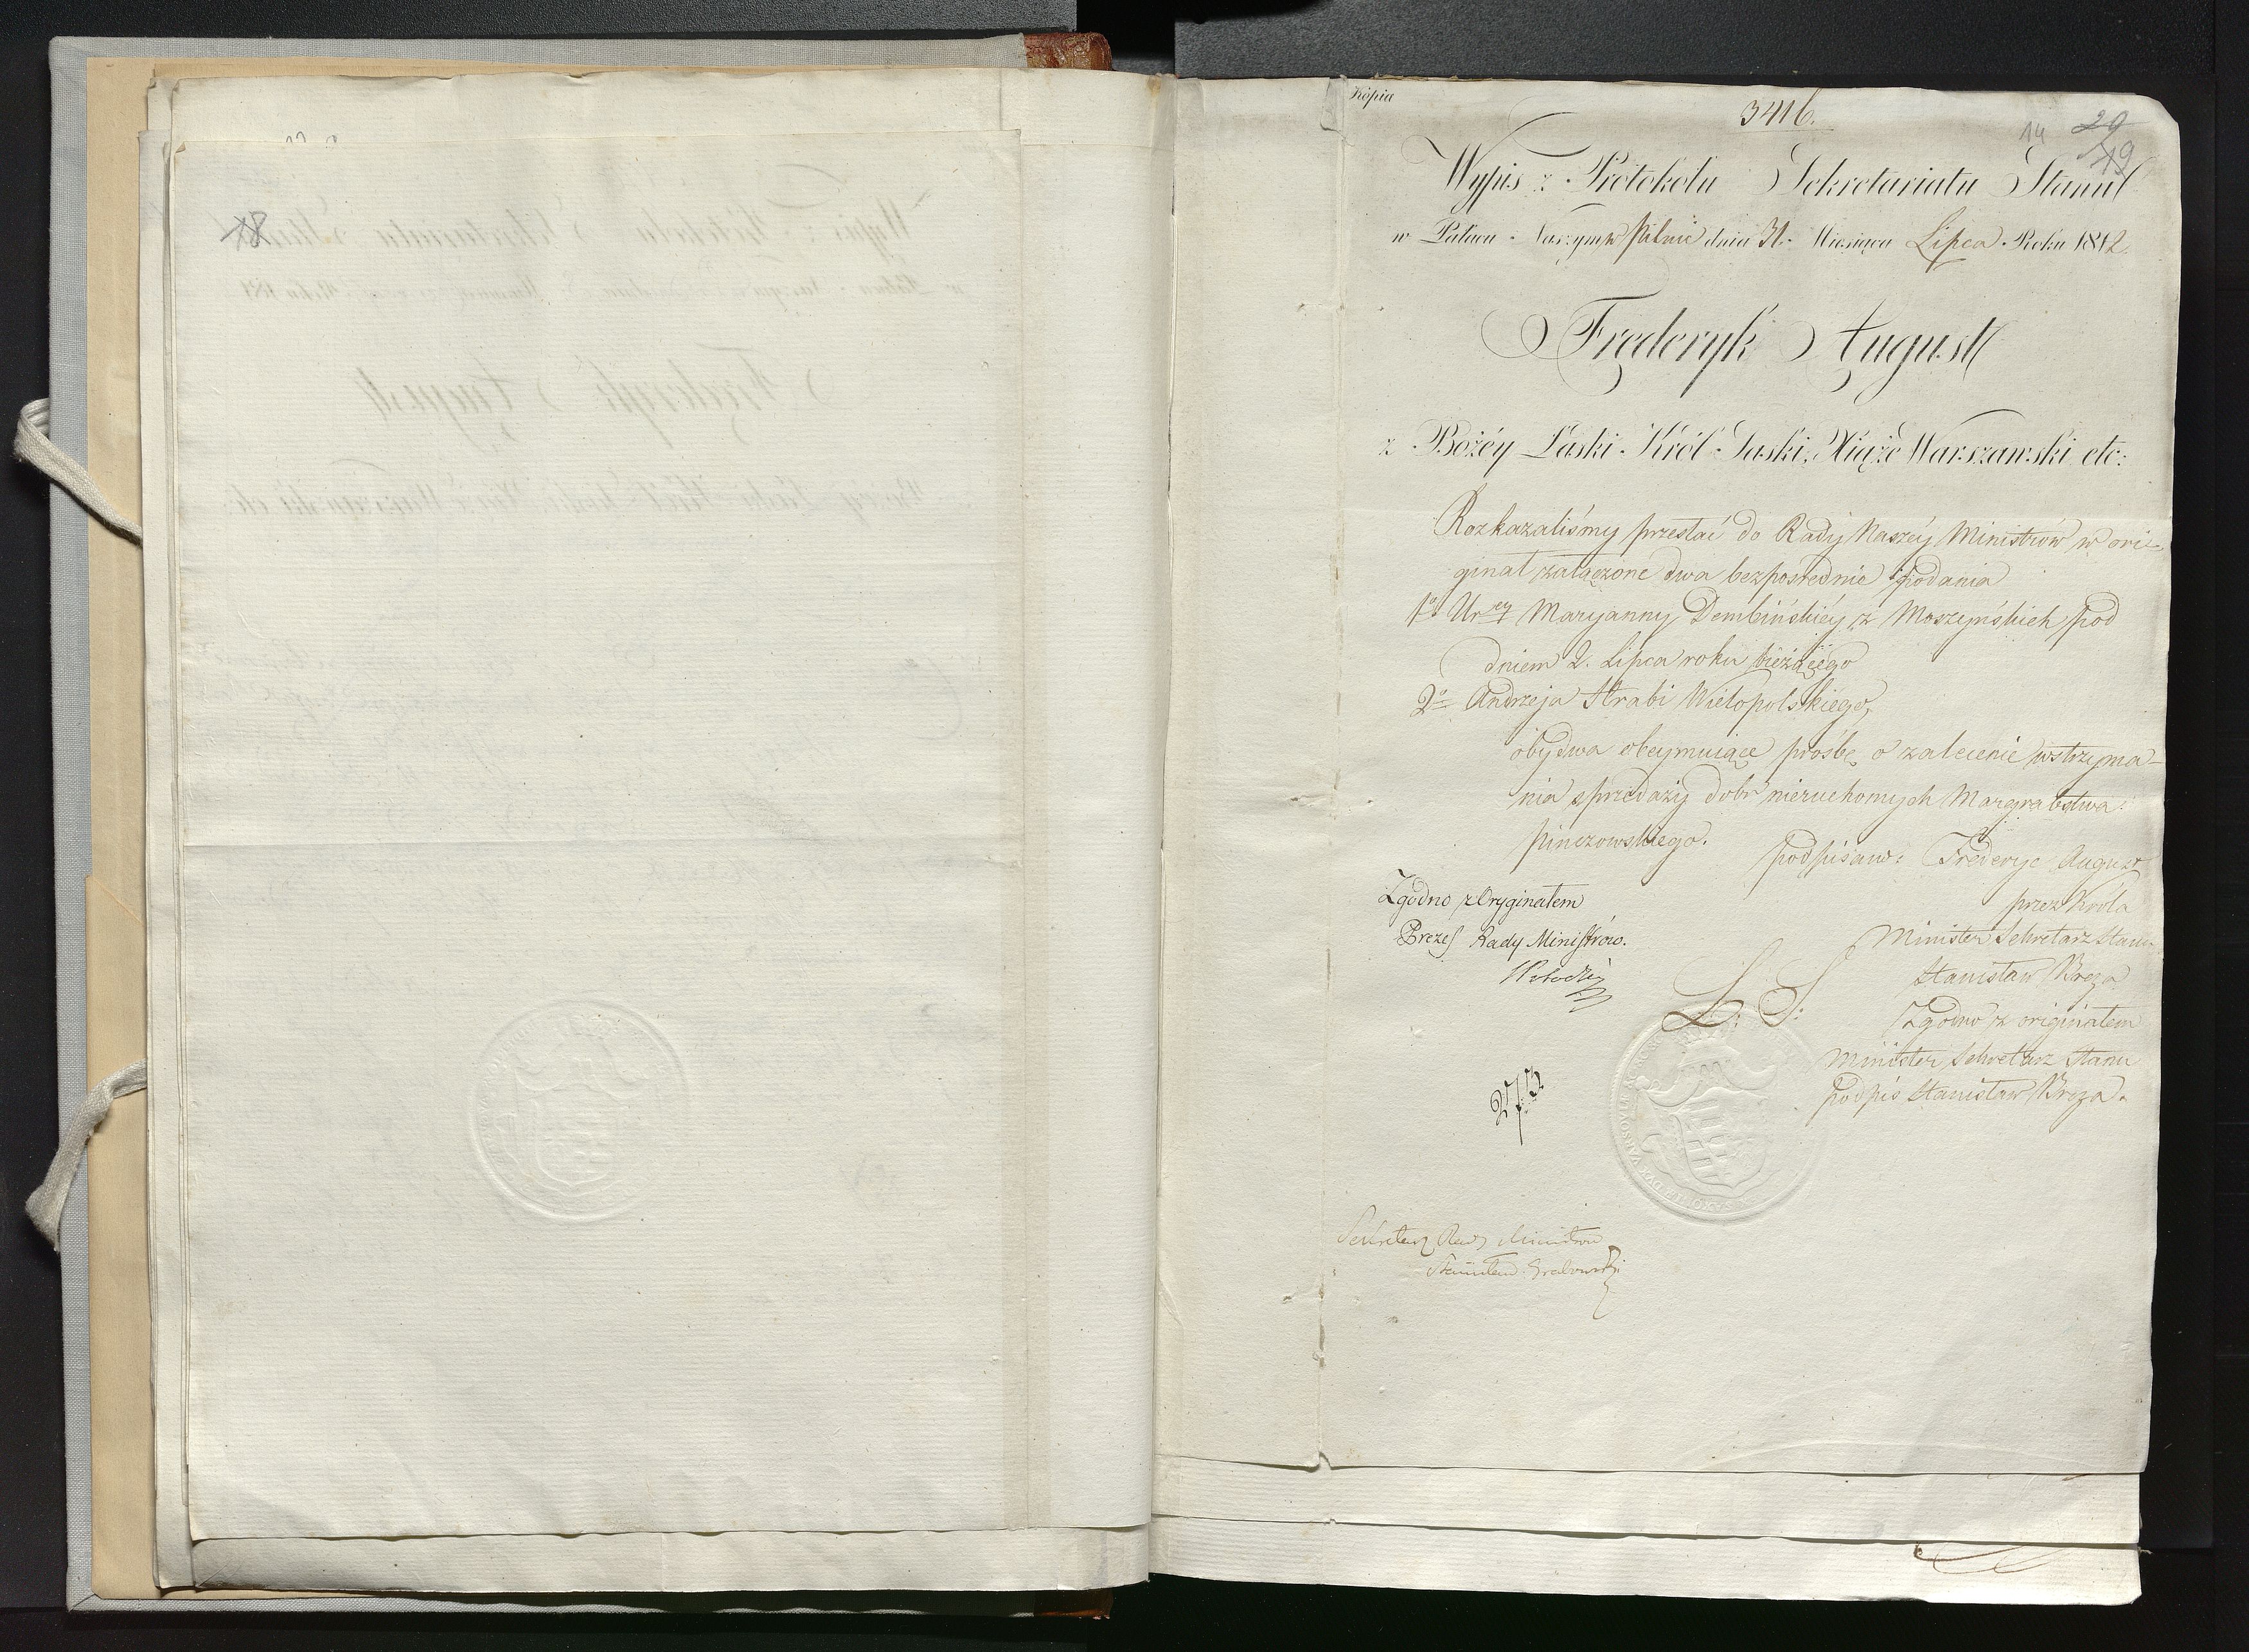 18
Kopia
3416.
14 29
19
Wypis z Protokołu Sekretariatu Stanu
w Pałacu Naszym w Pilnic dnia 31. Miesiąca Lipca Roku 1812
Frederyk August
z Bożéy Łaski Król Saski, Xiążę Warszawski etc:
Rozkazaliśmy przesłać do Rady Naszéy Ministrów w ori-
ginał załączone dwa bezpośrednie podania
1o Urey Maryanny Dembińskiéy z Moszyńskich pod
dniem 2. Lipca roku bieżącego
2o Andrzeja Hrabi Wielopolskiego,
obydwa obeymuiące prośbę o zalecenie wstrzyma-
nia sprzedaży dobr nieruchomych Margrabstwa
Pinczowskiego.
podpisano: Frederyc August
Zgodno z Oryginałem
przez Króla
Prezes Rady Ministrów.
Minister Sekretarz Stanu
L: S:
Stanisław Breza
Zgodno z originałem
Minister Sekretarz Stanu
podpis Stanisław Breza.
27/3
Sekretarz Rady Ministrow
Stanisław Grabowski